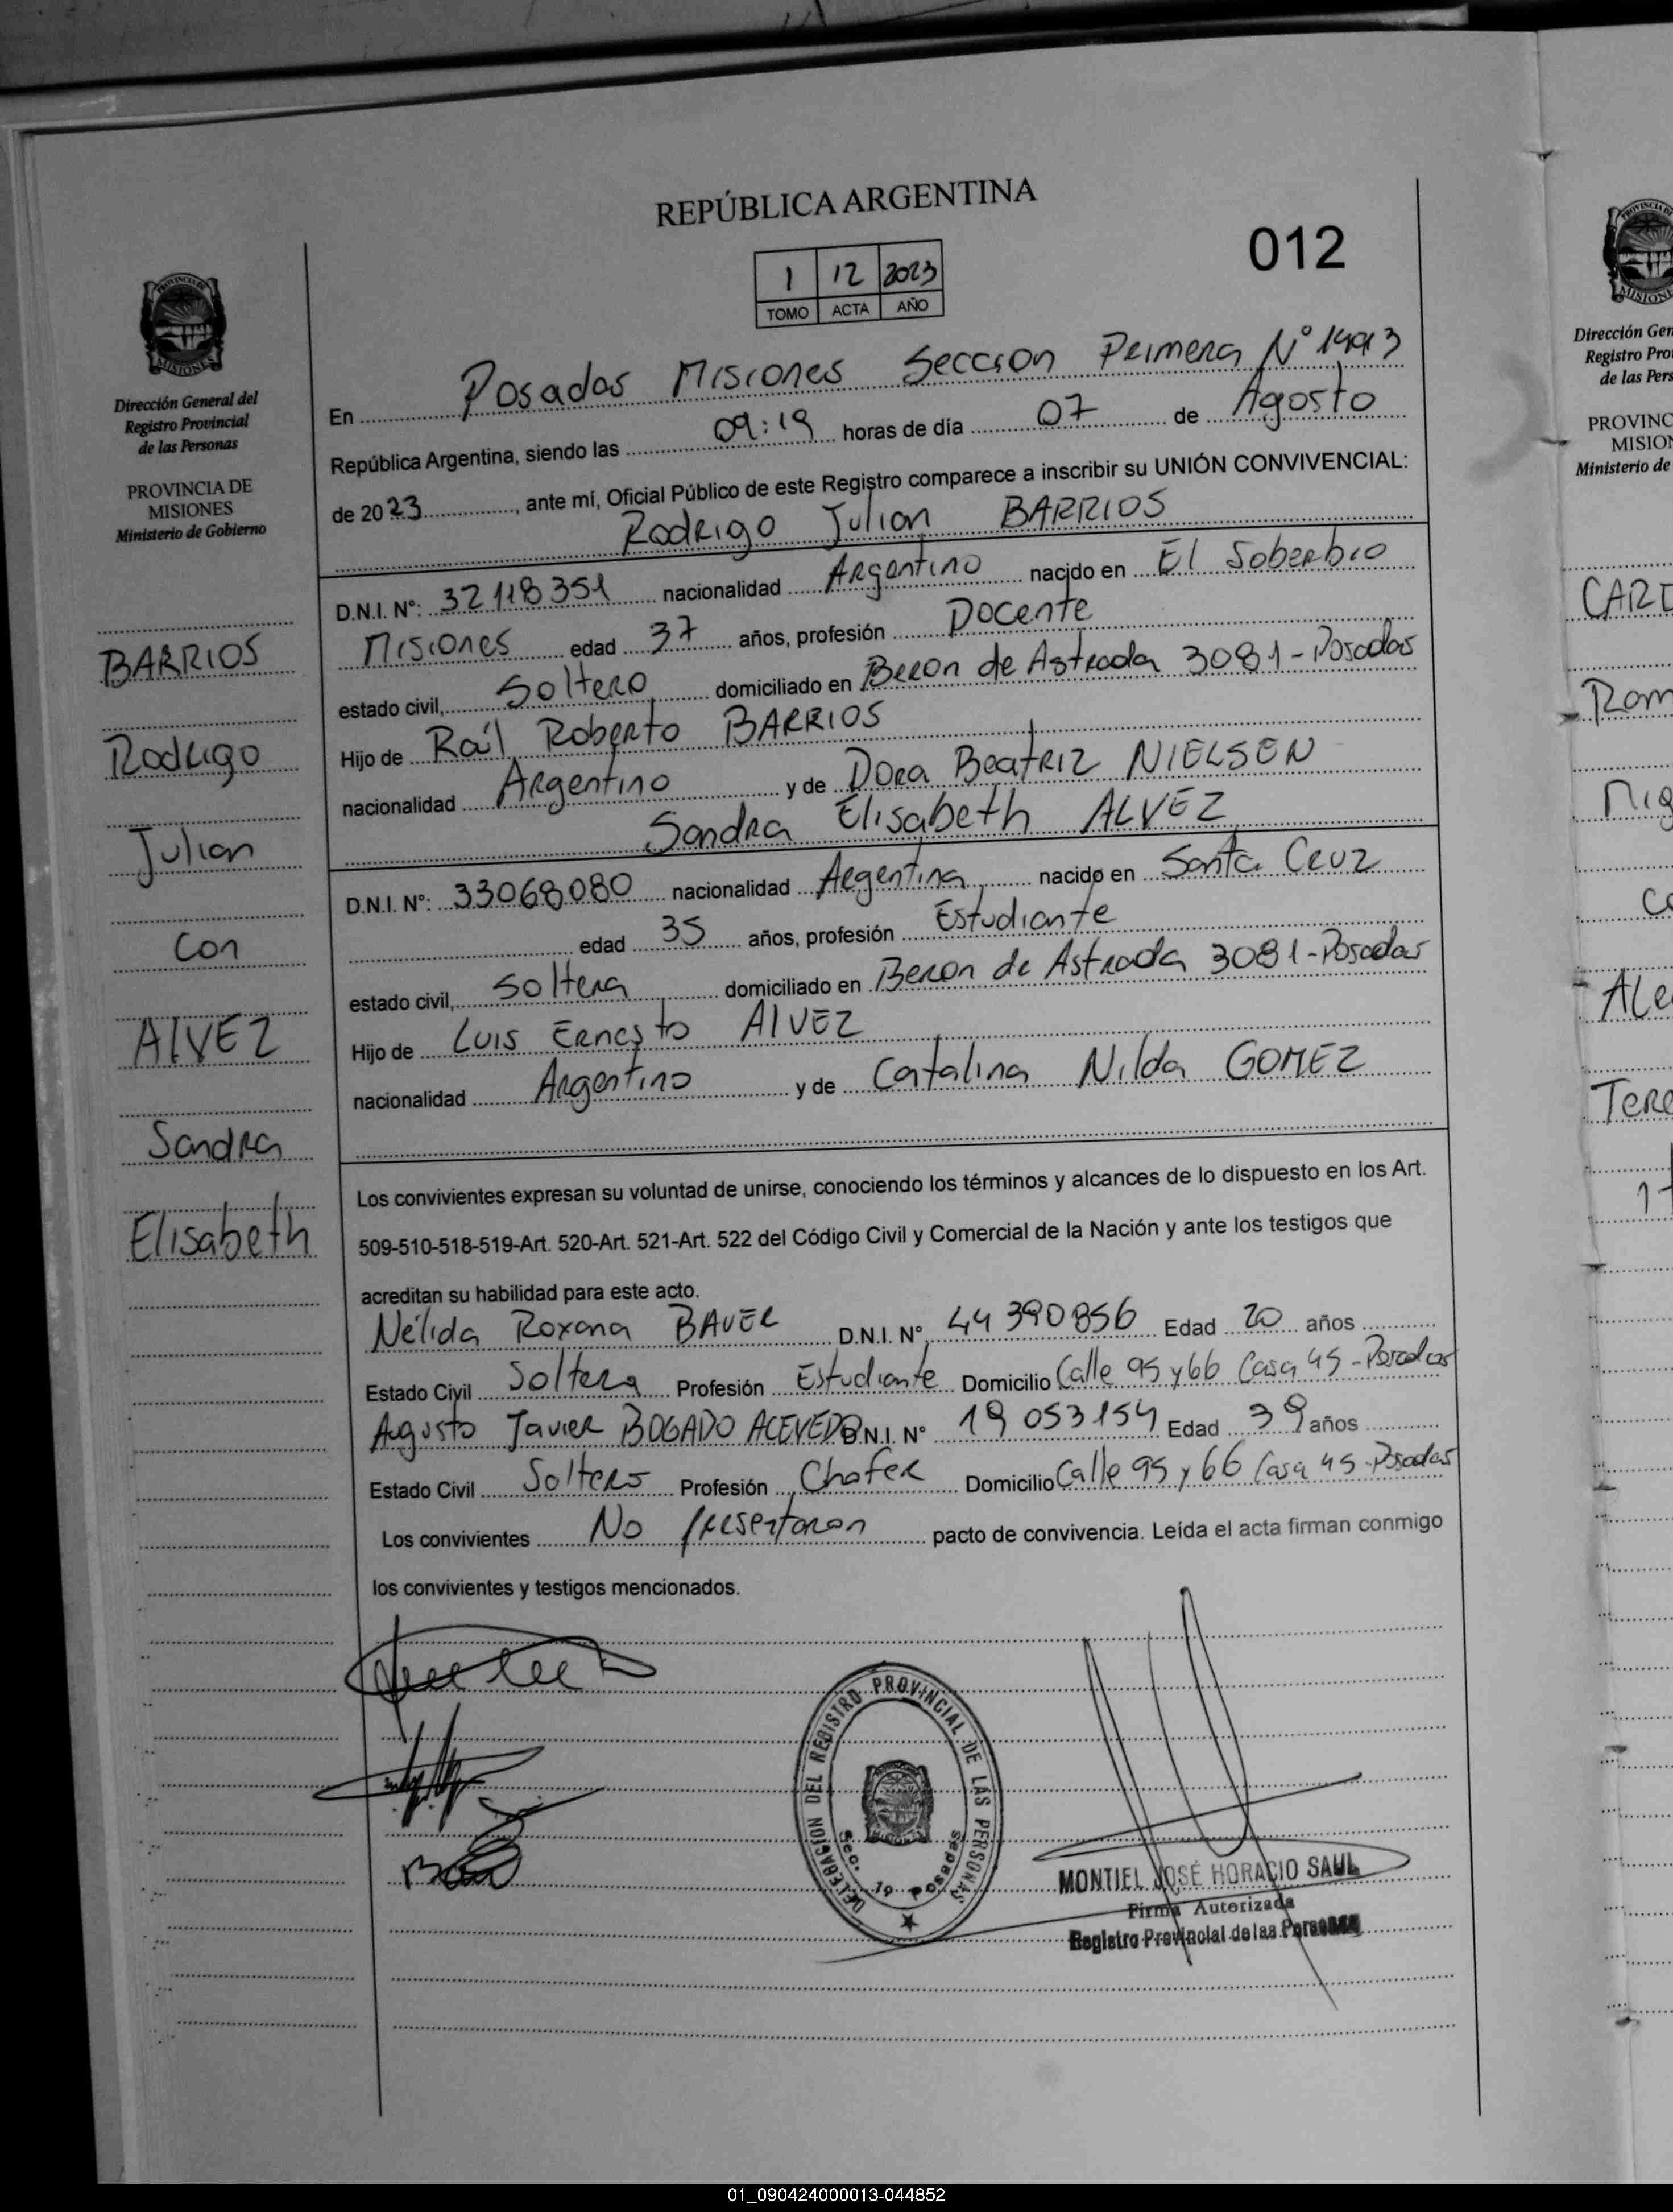 REPÚBLICA ARGENTINA
012
1 12 2023
TOMO ACTA AÑO
PROVINCIA DE
MISIONES
Dirección General del
Registro Provincial
de las Personas
PROVINCIA DE
MISIONES
Ministerio de Gobierno
BARRIOS
Rodrigo
Julian
Con
AlVEZ
Sandra
Elisabeth
En Posadas Misiones Seccion Primera N°
República Argentina, siendo las 09:19 horas de día 07 de Agosto
de 2023, ante mí, Oficial Público de este Registro comparece a inscribir su UNIÓN CONVIVENCIAL:
Rodrigo Julian BARRIOS
D.N.I. N°: 32118351 nacionalidad Argentino nacido en El Soberbio
Misiones edad 37 años, profesión Docente
estado civil, Soltero domiciliado en Beron de Astrada 3081-Posadas
Hijo de Raúl Roberto BARRIOS
nacionalidad Argentino y de Dora Beatriz NIELSEN
Sandra Elisabeth ALVEZ
D.N.I. N°: 33068080 nacionalidad Argentina nacido en Santa Cruz
edad 35 años, profesión Estudiante
estado civil, Soltera domiciliado en Beron de Astrada 3081-Posadas
Hijo de Luis Ernesto AlVEZ
nacionalidad Argentino y de Catalina Nilda GOMEZ
Los convivientes expresan su voluntad de unirse, conociendo los términos y alcances de lo dispuesto en los Art.
509-510-518-519-Art. 520-Art. 521-Art. 522 del Código Civil y Comercial de la Nación y ante los testigos que
acreditan su habilidad para este acto.
Nélida Roxana BAUER D.N.I. N° 44 390 856 Edad 20 años
Estado Civil Soltera Profesión Estudiante Domicilio Calle 95 y 66 Casa 45-Posadas
Augusto Javier BOGADO ACEVEDO D.N.I. N° 19 053 154 Edad 39 años
Estado Civil Soltero Profesión Chofer Domicilio Calle 95 y 66 Casa 45-Posadas
Los convivientes No presentaron pacto de convivencia. Leída el acta firman conmigo
los convivientes y testigos mencionados.
DELEGACIÓN DEL REGISTRO PROVINCIAL DE LAS PERSONAS
Sec. 1a Posadas
MONTIEL JOSÉ HORACIO SAUL
Firma Autorizada
Registro Provincial de las Personas
Dirección Gen
Registro Pro
de las Pers
PROVINC
MISION
Ministerio de
Rom
Mig
Ale
Tere
01_090424000013-044852